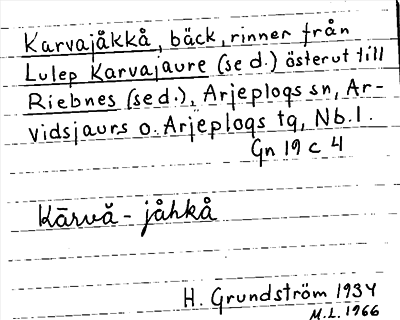 Karvajåkkå, bäck, rinner från
Lulep Karvajaure (se d.) österut till
Riebnes (se d.), Arjeplogs sn, Ar-
vidsjaurs o. Arjeplogs tg, Nb. l.
Gn 19 c 4
Kārvă - jåhkå
H. Grundström 1934
M.L. 1966